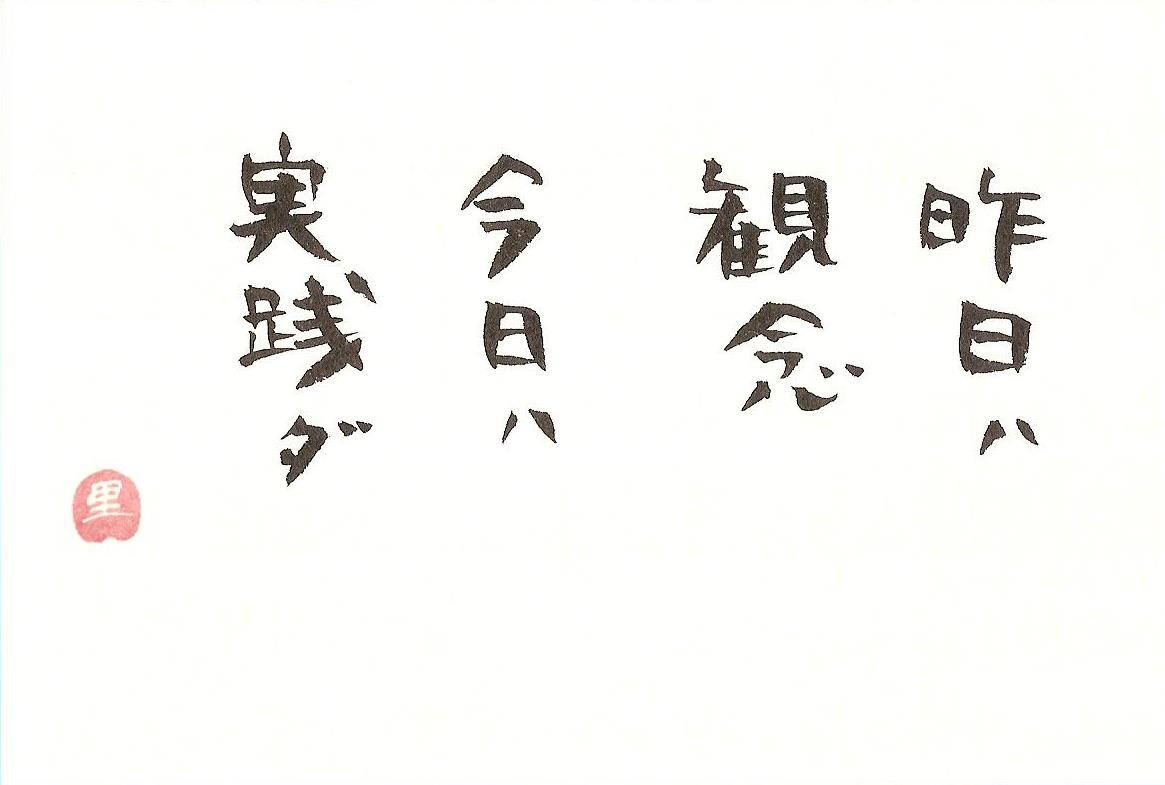 昨日ハ
観念
今日ハ
実践ダ
里